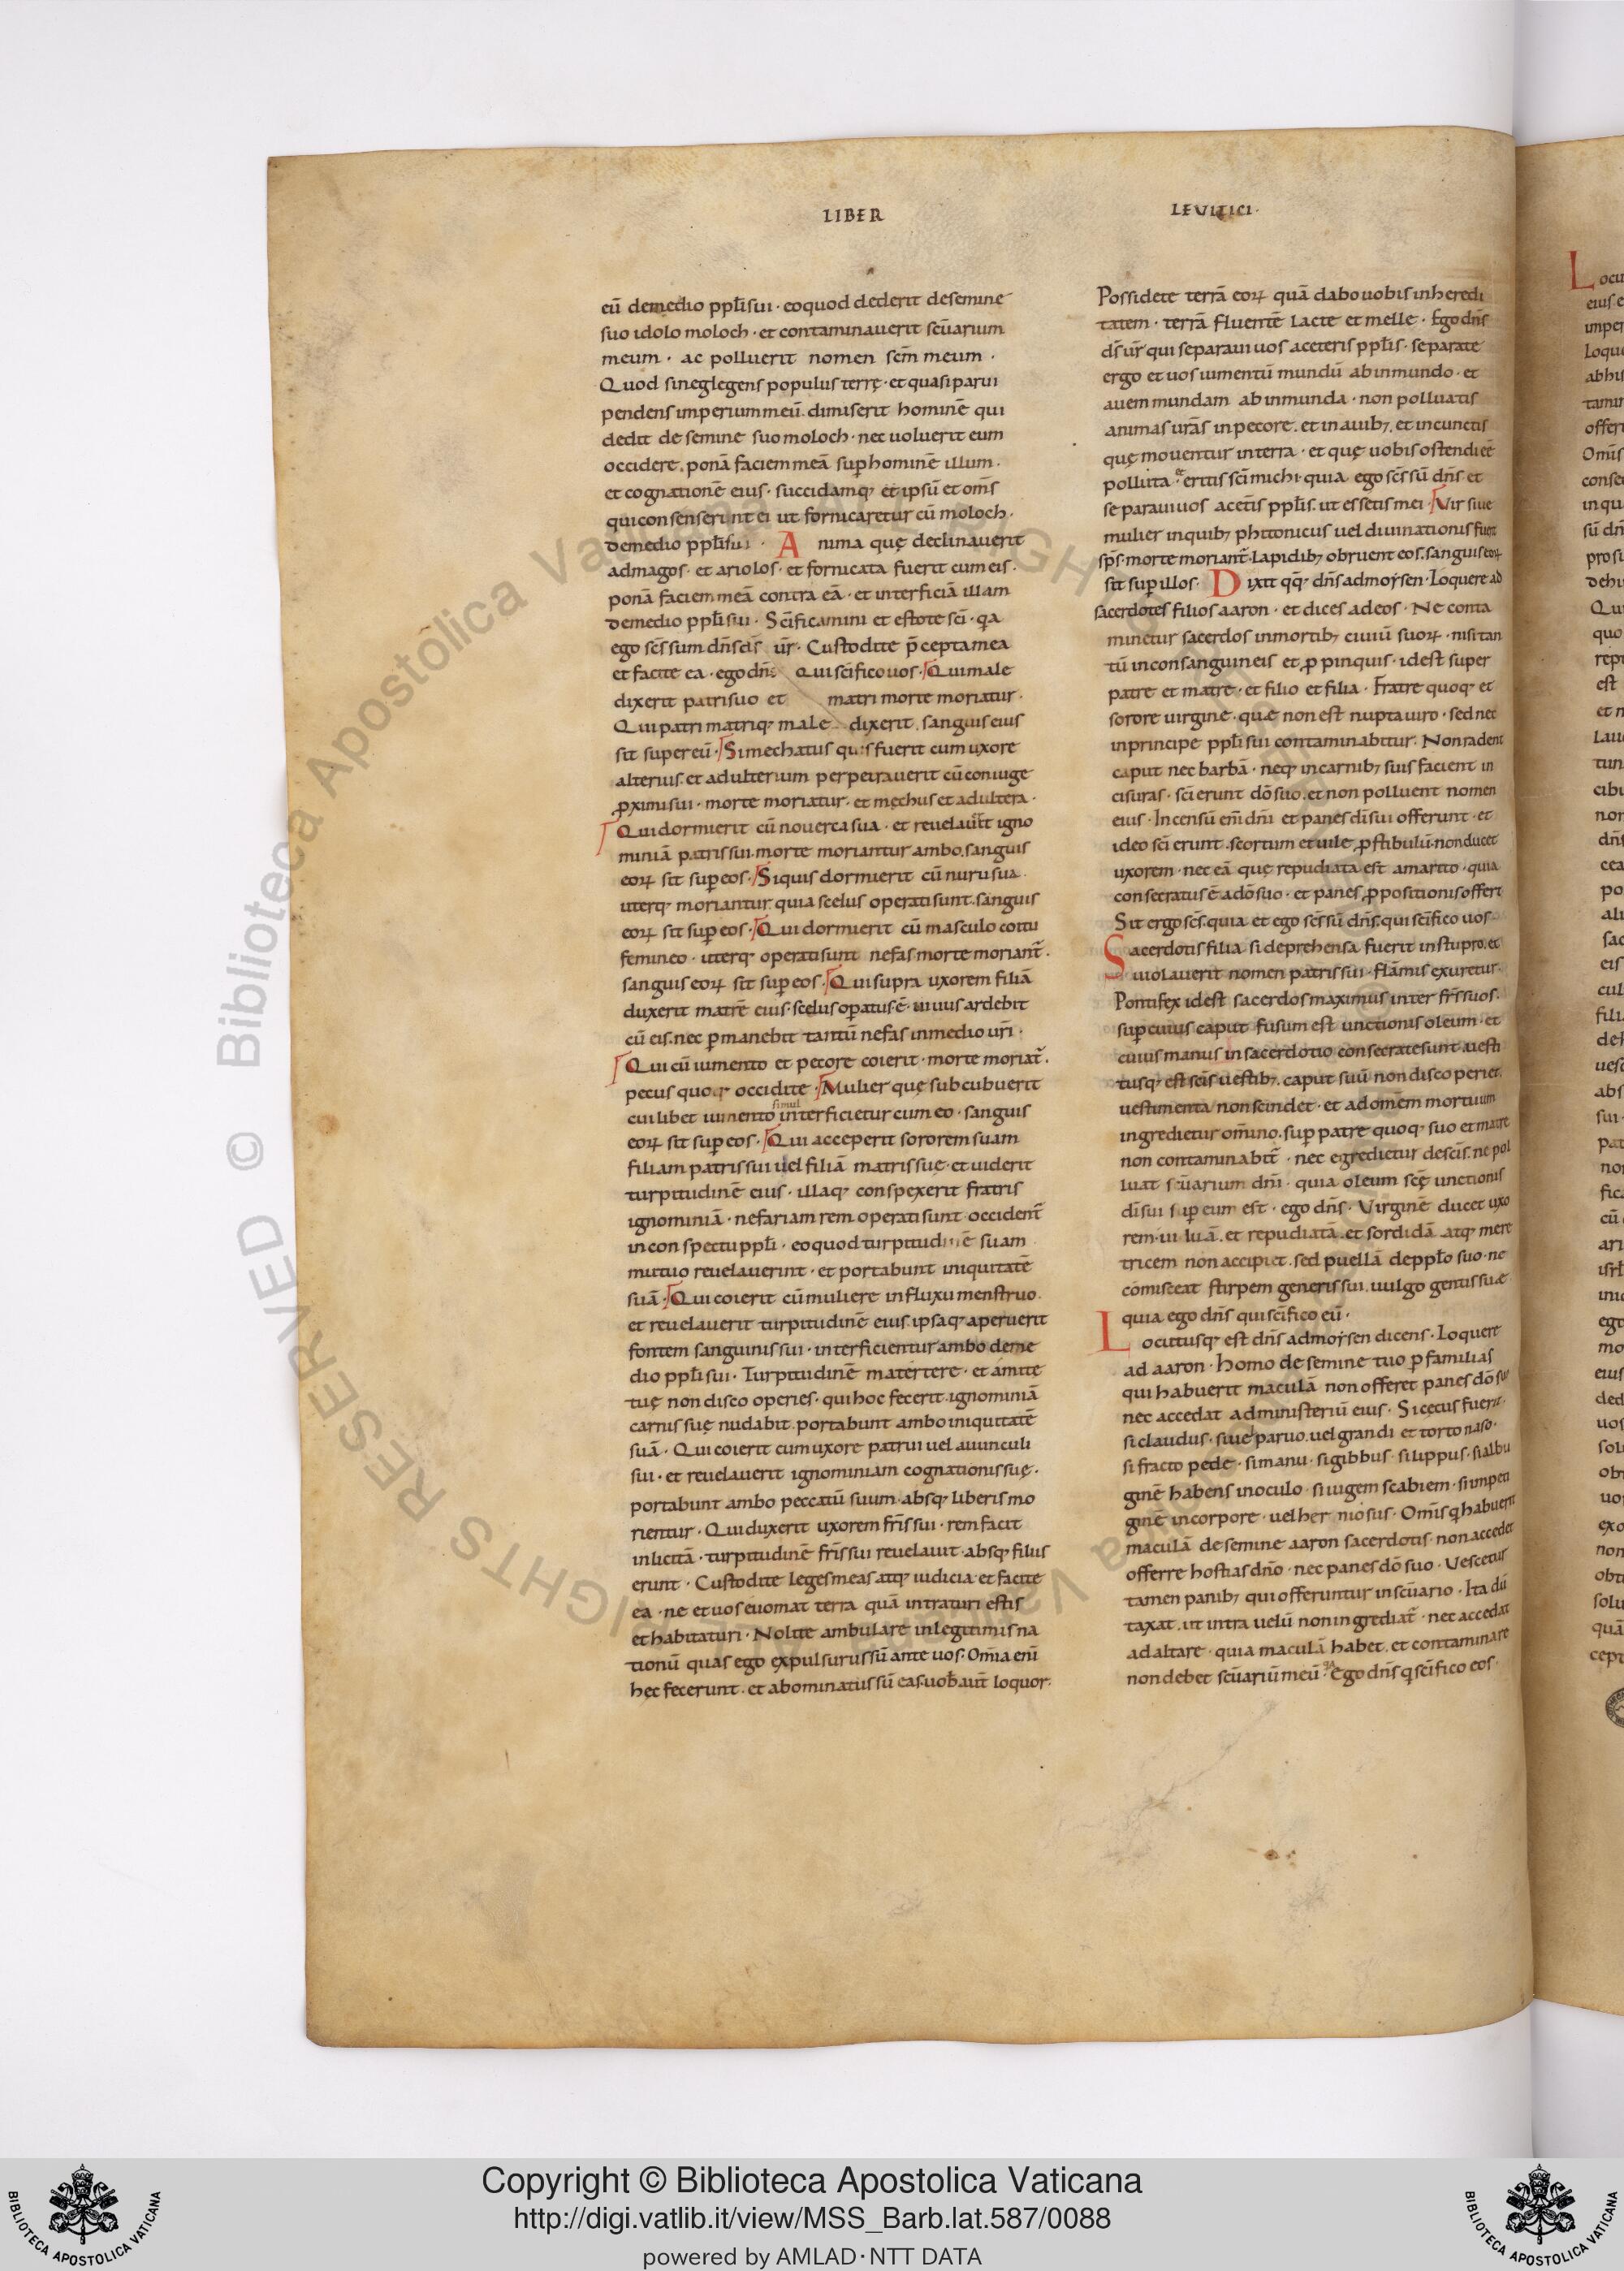 LIBER
LEVITICI·
eū demedio ppłi sui · eoquod dederit desemine
suo idolo moloch · et contaminauerit scūarium
meum · ac polluerit nomen scm̄ meum ·
Quod sineglegens populus terrę · et quasi parui
pendens imperium meū dimiserit hominē qui
dedit de semine suo moloch · nec uoluerit eum
occidere, ponā faciem meā sup hominē illum ·
et cognationē eius · succidamq; et ipsū et om̄s
qui consenserint ei ut fornicaretur cū moloch ·
demedio ppłi sui · Anima quę declinauerit
admagos · et ariolos · et fornicata fuerit cum eis ·
ponā faciem meā contra eā · et interficiā illam
demedio ppłi sui · Scīficamini et estote scī · qa
ego scs̄ sum dn̄s ur̄ · Custodite p̄cepta mea
et facite ea · ego dn̄s qui scīfico uos · Qui male
dixerit patri suo et matri morte moriatur ·
Qui patri matriq; male dixerit, sanguis eius
sit super eū · Si mechatus quis fuerit cum uxore
alterius, et adulterium perpetrauerit cū coniuge
proximi sui · morte moriatur · et mechus et adultera ·
Qui dormierit cū nouerca sua · et reuelauit igno
miniā patris sui, morte moriantur ambo, sanguis
eoꝝ sit sup eos · Siquis dormierit cū nuru sua
uterq; moriantur, quia scelus operati sunt, sanguis
eoꝝ sit sup eos · Qui dormierit cū masculo coitu
femineo · uterq; operati sunt nefas, morte moriant̄ ·
sanguis eoꝝ sit sup eos · Qui supra uxorem filiā
duxerit matrē eius · scelus opatus ē · uiuus ardebit
cū eis, nec pmanebit tantū nefas inmedio uri ·
Qui cū iumento et pecore coierit · morte moriat̄ ·
pecus quoq; occidite · Mulier quę subcubuerit
simul
cui libet iumento interficietur cum eo · sanguis
eoꝝ sit sup eos · Qui acceperit sororem suam
filiam patris sui uel filiā matris suę · et uiderit
turpitudinē eius · illaq; conspexerit fratris
ignominiā · nefariam rem operati sunt · occident̄
in conspectu ppłi · eoquod turpitudinē suam
mutuo reuelauerint · et portabunt iniquitatē
suā · Qui coierit cū muliere in fluxu menstruo
et reuelauerit turpitudinē eius, ipsaq; aperuerit
fontem sanguinis sui · interficientur ambo deme
dio ppłi sui · Turpitudinē matertere · et amite
tuę non discooperies · qui hoc fecerit, ignominiā
carnis suę nudabit, portabunt ambo iniquitatē
suā · Qui coierit cum uxore patrui uel auunculi
sui · et reuelauerit ignominiam cognationis suę ·
portabunt ambo peccatū suum · absq; liberis mo
rientur · Qui duxerit uxorem fr̄is sui · rem facit
inlicitā · turpitudinē fr̄is sui reuelauit · absq; filiis
erunt · Custodite leges meas atq; iudicia et facite
ea · ne et uos euomat terra quā intraturi estis
et habitaturi · Nolite ambulare in legitimis na
tionū quas ego expulsurus sū ante uos · Omīa enī
hęc fecerunt · et abominatus sū eas · uob̄ aut̄ loquor ·
Possidete terrā eoꝝ quā dabo uobis in heredi
tatem · terrā fluentē lacte et melle · Ego dn̄s
ds̄ ur̄ qui separaui uos a ceteris pplis · separate
ergo et uos iumentū mundū ab inmundo · et
auem mundam ab inmunda · non polluatis
animas uras̄ in pecore, et in auib; et in cunctis
quę mouentur in terra · et quę uobis ostendi eē
polluta · et eritis scī michi · quia ego scs̄ sū dn̄s et
separaui uos a cetīs pplis, ut essetis mei · Vir siue
mulier in quib; phitonicus uel diuinationis fuerit
sps̄ · morte moriant̄ · Lapidib; obruent eos, sanguis eoꝝ
sit sup illos · Dixit qq; dn̄s ad moysen · Loquere ad
sacerdotes filios aaron · et dices ad eos · Ne conta
minetur sacerdos in mortib; ciuiū suoꝝ · nisi tan
tū in consanguineis et propinquis · id est super
patre et matre · et filio et filia · Fratre quoq; et
sorore uirgine · quæ non est nupta uiro · sed nec
in principe ppłi sui contaminabitur · Non radent
caput nec barbā · neq; in carnib; suis facient in
cisuras · scī erunt dō suo, et non polluent nomen
eius · Incensū enī dn̄i et panes dī sui offerunt · et
ideo scī erunt · scortum et uile prostibulū · non ducet
uxorem · nec eā quę repudiata est a marito · quia
consecratus ē a dō suo · et panes propositionis offert
Sit ergo scs̄, quia et ego scs̄ sū dn̄s, qui scīfico uos
Sacerdotis filia si deprehensa fuerit in stupro, et
uiolauerit nomen patris sui · flāmis exuretur ·
Pontifex id est sacerdos maximus inter fr̄s suos ·
sup cuius caput fusum est unctionis oleum · et
cuius manus in sacerdotio consecrate sunt · uesti
tusq; est scīs uestib; caput suū non discoperiet
uestimenta non scindet · et ad omēm mortuum
ingredietur om̄ino, sup patre quoq; suo et matre
non contaminabit̄ · nec egredietur de scīs · ne pol
luat scūarium dn̄i · quia oleum scę̄ unctionis
dī sui sup eum est · ego dn̄s · Virginē ducet uxo
rem · uiduā, et repudiatā, et sordidā atq; mere
tricem non accipiet, sed puellā de ppło suo · ne
comisceat stirpem generis sui, uulgo gentis suæ
quia ego dn̄s qui scīfico eū ·
Locutusq; est dn̄s ad moysen dicens · Loquere
ad aaron · Homo de semine tuo p familias
qui habuerit maculā non offeret panes dō suo
nec accedat ad ministeriū eius · Si cecus fuerit ·
si claudus · siue paruo, uel grandi et torto naso ·
si fracto pede · si manu · si gibbus · si lippus · si albu
ginē habens in oculo · si iugem scabiem · si inpeti
ginē in corpore · uel herniosus · Omīs q habuerit
maculā de semine aaron sacerdotis · non accedet
offerre hostias dn̄o · nec panes dō suo · Vescetur
tamen panib; qui offeruntur in scūario · Ita dū
taxat, ut intra uelū non ingrediat̄ · nec accedat
ad altare · quia maculā habet, et contaminare
non debet scūariū meū · qa Ego dn̄s q scīfico eos ·
Copyright © Biblioteca Apostolica Vaticana
http://digi.vatlib.it/view/MSS_Barb.lat.587/0088
powered by AMLAD·NTT DATA
BIBLIOTECA APOSTOLICA VATICANA
BIBLIOTECA APOSTOLICA VATICANA